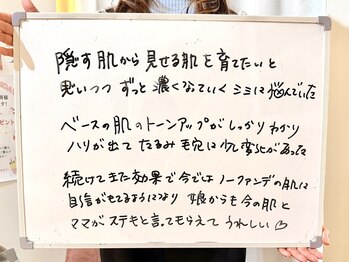 隠す肌から見せる肌を育てたいと
思いつつ ずっと濃くなっていくシミに悩んでいた
ベースの肌のトーンアップがしっかりわかり
ハリが出て たるみ毛穴に少し変化があった
続けてきた効果で今ではノーファンデの肌に
自信がもてるようになり 娘からも今の肌と
ママがステキと言ってもらえて うれしい♡